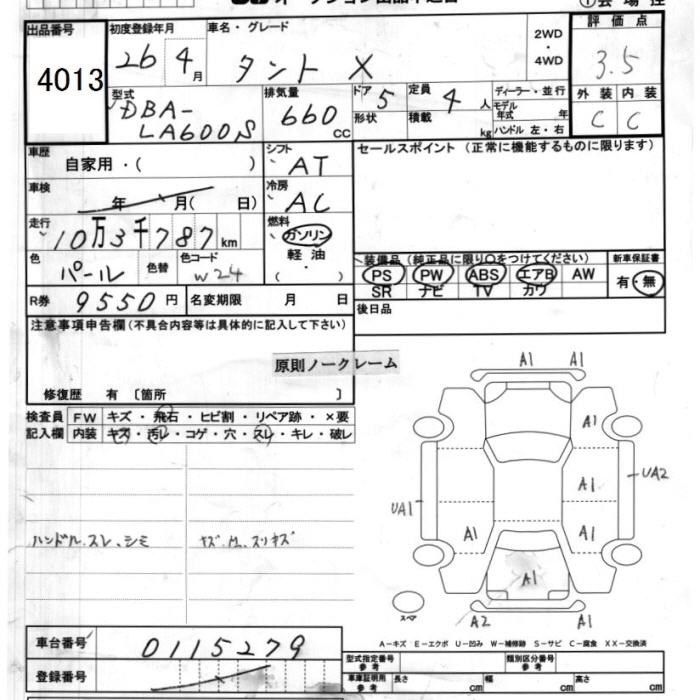 出品番号 初度登録年月 車名・グレード 2WD ・ 4WD 評価点
4013 26 4月 タント X 3.5
型式 排気量 ドア 定員 ディーラー・並行 外装 内装
DBA-LA600S 660 CC 5 形状 4人 積載 kg モデル年式 年 ハンドル 左・右 C C
車歴 シフト セールスポイント (正常に機能するものに限ります)
自家用・( ) AT
車検 冷房
年 月( 日) AC
走行 燃料
10万3千787km ガソリン
色 色替 色コード 軽油 装備品 (純正品に限り○をつけてください) 新車保証書
パール W24 ( ) PS PW ABS エアB AW 有・無
SR ナビ TV カワ
R券 9550円 名変期限 月 日 後日品
注意事項申告欄(不具合内容等は具体的に記入して下さい)
原則ノークレーム
修復歴 有 〔箇所 〕
検査員 FW キズ・飛石・ヒビ割・リペア跡・×要
記入欄 内装 キズ・汚レ・コゲ・穴・スレ・キレ・破レ
A1 A1
A1
UA1 A1 UA2
A1 A1
A1
ハンドル.スレ、シミ
スペア A2 A1
A-キズ E-エクボ U-凹み W-補修跡 S-サビ C-腐食 XX-交換済
車台番号 0115279
型式指定番号 参考 類別区分番号 参考
登録番号 車庫証明用 参考 長さ cm 幅 cm 高さ cm